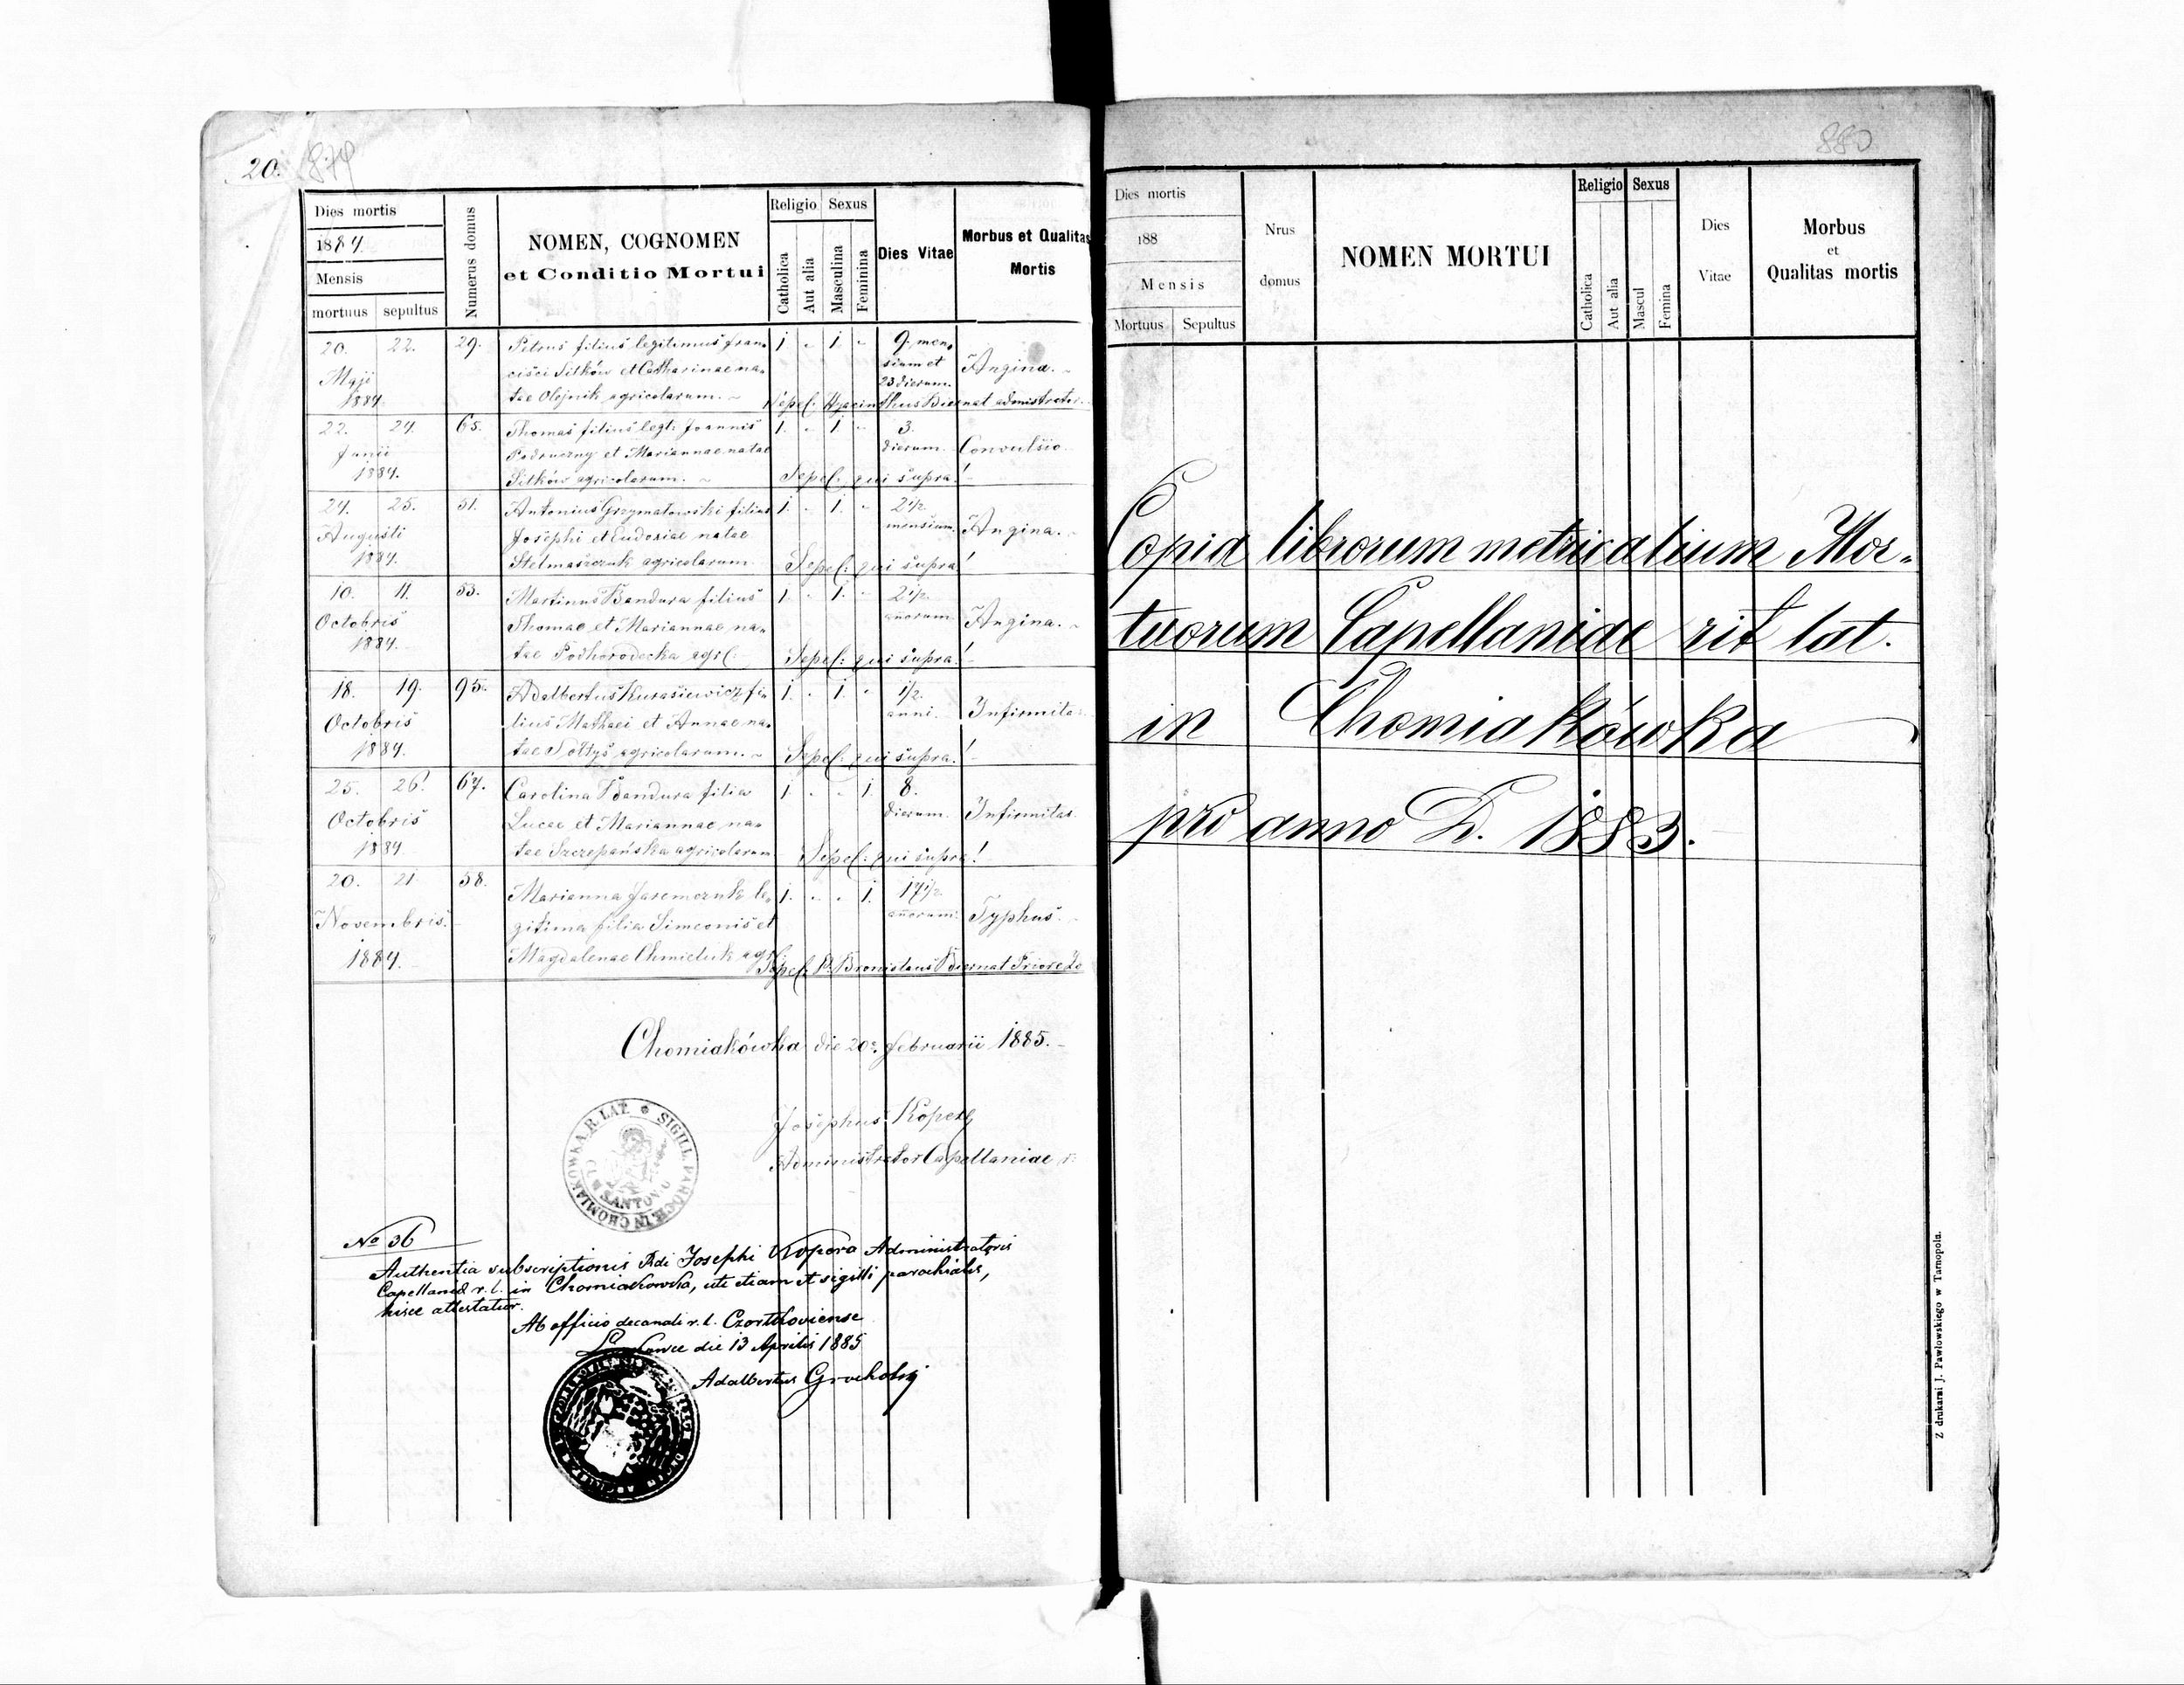 20. 879
Dies mortis
1884
Mensis
mortuus sepultus
Numerus domus
NOMEN, COGNOMEN
et Conditio Mortui
Religio Sexus
Catholica
Aut alia
Masculina
Feminina
Dies Vitae
Morbus et Qualitas
Mortis
20. 22. 29. Petrus filius legitimus Fran- 1. - 1. - 9. men-
cisci Sitków et Catharinae na- sium et Angina. -
Maji 23 dierum.
1884 tae Olejnik agricolarum. - Sepel: Hyacinthus Biernat administrator.
22. 24. 65. Thomas filius legt: Joannis 1. - 1. - 3.
Junii et Mariannae natae dierum. Convulsio.
1884. Sitków agricolarum. - Sepel: qui supra!
24. 25. 51. Antonius Grzymałowski filius 1. - 1. - 2 1/2
Augusti Josephi et Eudoxiae natae mensium. Angina. -
1884. Stelmaszczuk agricolarum. Sepel: qui supra!
10. 11. 53. Martinus Bandura filius 1. - 1. - 2 1/2
Octobris Thomae et Mariannae na- anorum. Angina. -
1884. tae Podhorodecka agrl: Sepel: qui supra!
18. 19. 95. Adalbertus Kurasiewicz fi- 1. - 1. - 1/2
Octobris lius Mathaei et Annae na- anni. Infirmitas
1884. tae Sołtys agricolarum. - Sepel: qui supra!
25. 26! 67. Carolina Bandura filia 1 - - 1 8.
Octobris Lucae et Mariannae na- dierum. Infirmitas.
1884 tae Szczepańska agricolarum Sepel: qui supra!
20. 21 58. Marianna Jaremczuk le- 1. - - 1. 17 1/2
Novembris. gitima filia Simeonis et anorum. Typhus.
1884. Magdalenae Chmieluk agrl: Sepel: Bronislaus Biernat Priore
Chomiakówka die 20. februarii 1885. -
Josephus
Administrator Capellaniae r:
SIGILL PAROCH. IN CHOMIAKOWKA R. LAT.
No 36
Authentia subscriptionis Rdi Josephi Administratoris
Capellaniæ r. l. in Chomiakowka, uti etiam et sigilli parochialis,
hisce attestatur.
Ab officio decanali r. l. Czortkoviense
die 13 Aprilis 1885
Adalbertus
880
Dies mortis
188
Mensis
Mortuus Sepultus
Nrus
domus
NOMEN MORTUI
Religio Sexus
Catholica
Aut alia
Mascul
Femina
Dies
Vitae
Morbus
et
Qualitas mortis
Copia librorum metricalium Mor-
tuorum Capellaniae rit lat.
in Chomiakówka
pro anno D. 1883.
Z drukarni J. Pawłowskiego w Tarnopolu.